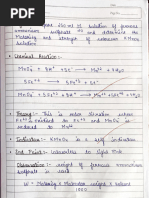 prepare 250 ml of solution of ferrous
ammonium sulphate and determine the
Molarity and strength of unknown KMnO4
solution.
Chemical Reaction :-
MnO4 + 8H+ + 5e- → Mn2+ + 4H2O
5Fe2+ → 5Fe3+ + 5e-
MnO4 + 8H+ + 5Fe2+ → Mn2+ + 5Fe3+ + 4H2O
Theory :- This is redox titration where
Fe2+ is oxidised to Fe3+ and MnO4 is
reduced to Mn2+
Indicator :- KMnO4 is a self indicator
End Point :- Colourless to light pink
Observation :- weight of ferrous ammonium
sulphate is used
W = Molarity × Molecular weight × volume
1000